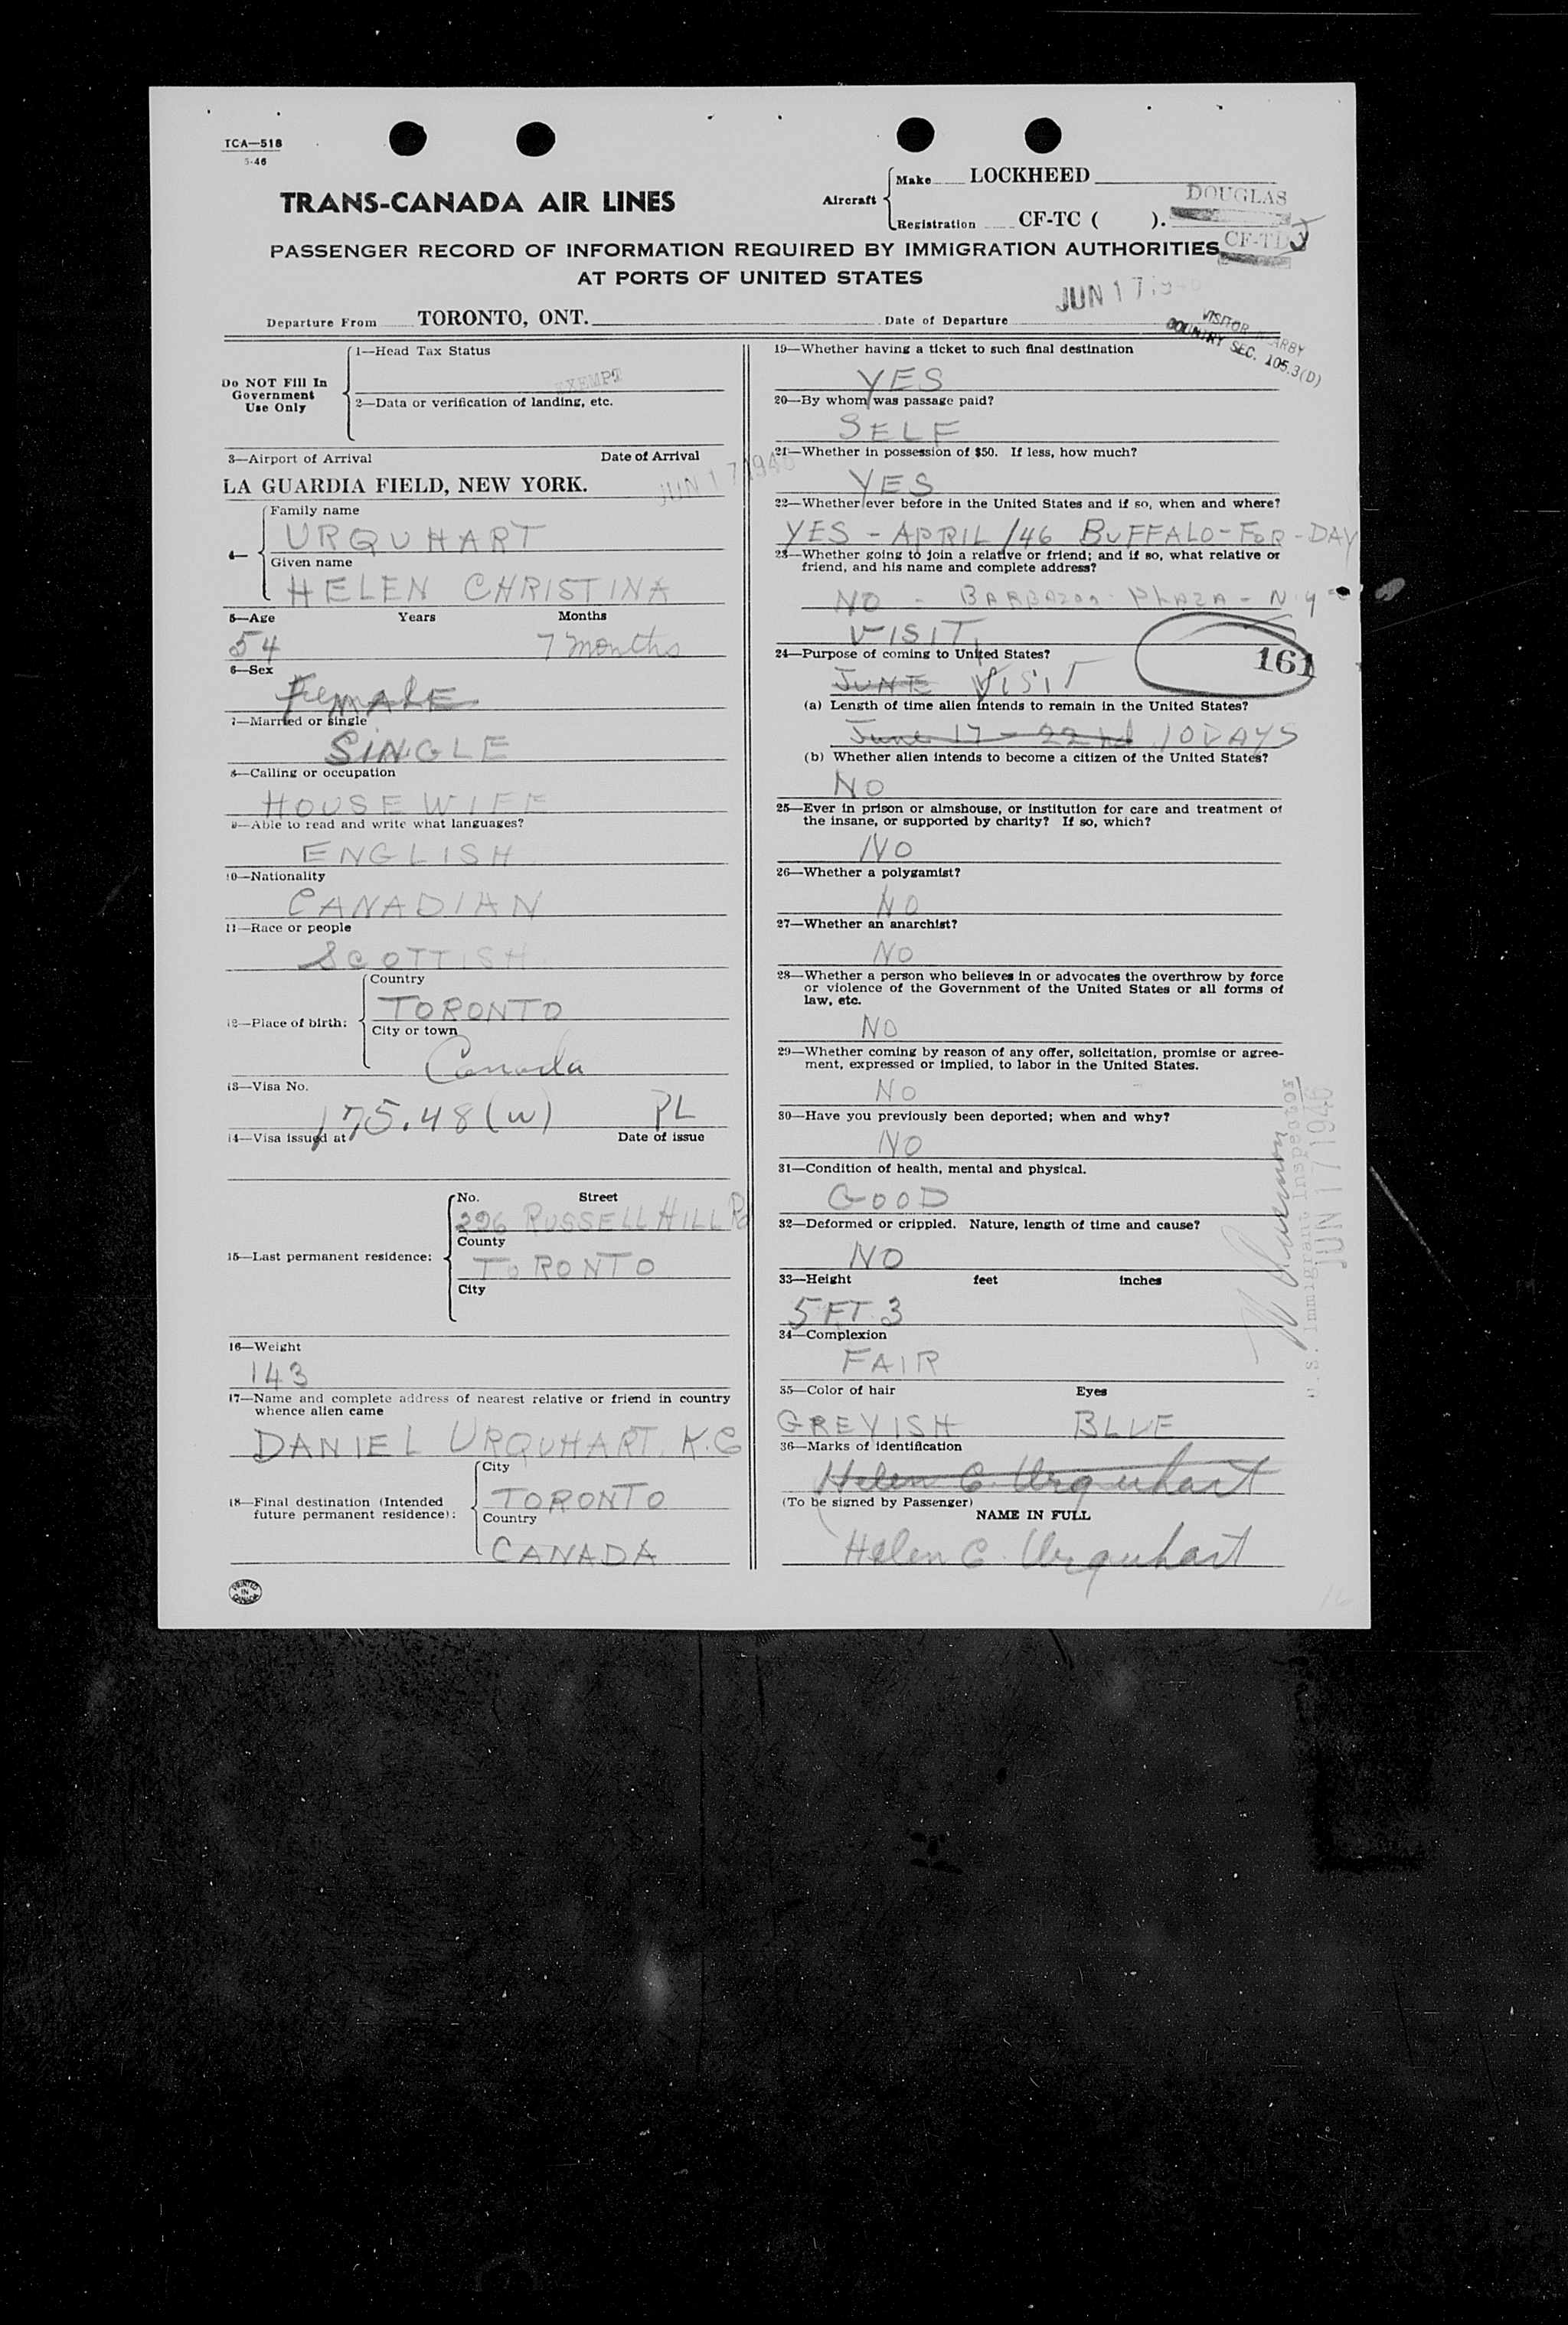 TCA—518
5-46
TRANS-CANADA AIR LINES
Aircraft
Make LOCKHEED
DOUGLAS
Registration CF-TC ( ).
CF-TDJ
PASSENGER RECORD OF INFORMATION REQUIRED BY IMMIGRATION AUTHORITIES
AT PORTS OF UNITED STATES
JUN 17 1946
Departure From TORONTO, ONT. Date of Departure
VISITOR NEARBY
COUNTRY SEC. 105.3(D)
Do NOT Fill In
Government
Use Only
1—Head Tax Status
EXEMPT
2—Data or verification of landing, etc.
3—Airport of Arrival Date of Arrival
LA GUARDIA FIELD, NEW YORK. JUN 17 1946
4—
Family name
URQUHART
Given name
HELEN CHRISTINA
5—Age Years Months
54 7 months
6—Sex
Female
7—Married or single
SINGLE
8—Calling or occupation
HOUSEWIFE
9—Able to read and write what languages?
ENGLISH
10—Nationality
CANADIAN
11—Race or people
SCOTTISH
12—Place of birth:
Country
TORONTO
City or town
Canada
13—Visa No.
175.48(w) PL
14—Visa issued at Date of issue
15—Last permanent residence:
No. Street
296 RUSSELL HILL Rd
County
TORONTO
City
16—Weight
143
17—Name and complete address of nearest relative or friend in country
whence alien came
DANIEL URQUHART. K.C
18—Final destination (Intended
future permanent residence):
City
TORONTO
Country
CANADA
PRINTED
IN
CANADA
19—Whether having a ticket to such final destination
YES
20—By whom was passage paid?
SELF
21—Whether in possession of $50. If less, how much?
YES
22—Whether ever before in the United States and if so, when and where?
YES - APRIL/46 BUFFALO-FOR-DAY
23—Whether going to join a relative or friend; and if so, what relative or
friend, and his name and complete address?
NO - BARBAZON PLAZA - N.Y
VISIT
24—Purpose of coming to United States?
161
JUNE VISIT
(a) Length of time alien intends to remain in the United States?
June 17 - 22nd 10 DAYS
(b) Whether alien intends to become a citizen of the United States?
NO
25—Ever in prison or almshouse, or institution for care and treatment of
the insane, or supported by charity? If so, which?
NO
26—Whether a polygamist?
NO
27—Whether an anarchist?
NO
28—Whether a person who believes in or advocates the overthrow by force
or violence of the Government of the United States or all forms of
law, etc.
NO
29—Whether coming by reason of any offer, solicitation, promise or agree-
ment, expressed or implied, to labor in the United States.
NO
30—Have you previously been deported; when and why?
NO
31—Condition of health, mental and physical.
GOOD
32—Deformed or crippled. Nature, length of time and cause?
NO
33—Height feet inches
5 FT. 3
34—Complexion
FAIR
35—Color of hair Eyes
GREYISH BLUE
36—Marks of identification
Helen C. Urquhart
(To be signed by Passenger)
NAME IN FULL
Helen C. Urquhart
U.S. Immigrant Inspector
JUN 17 1946
16